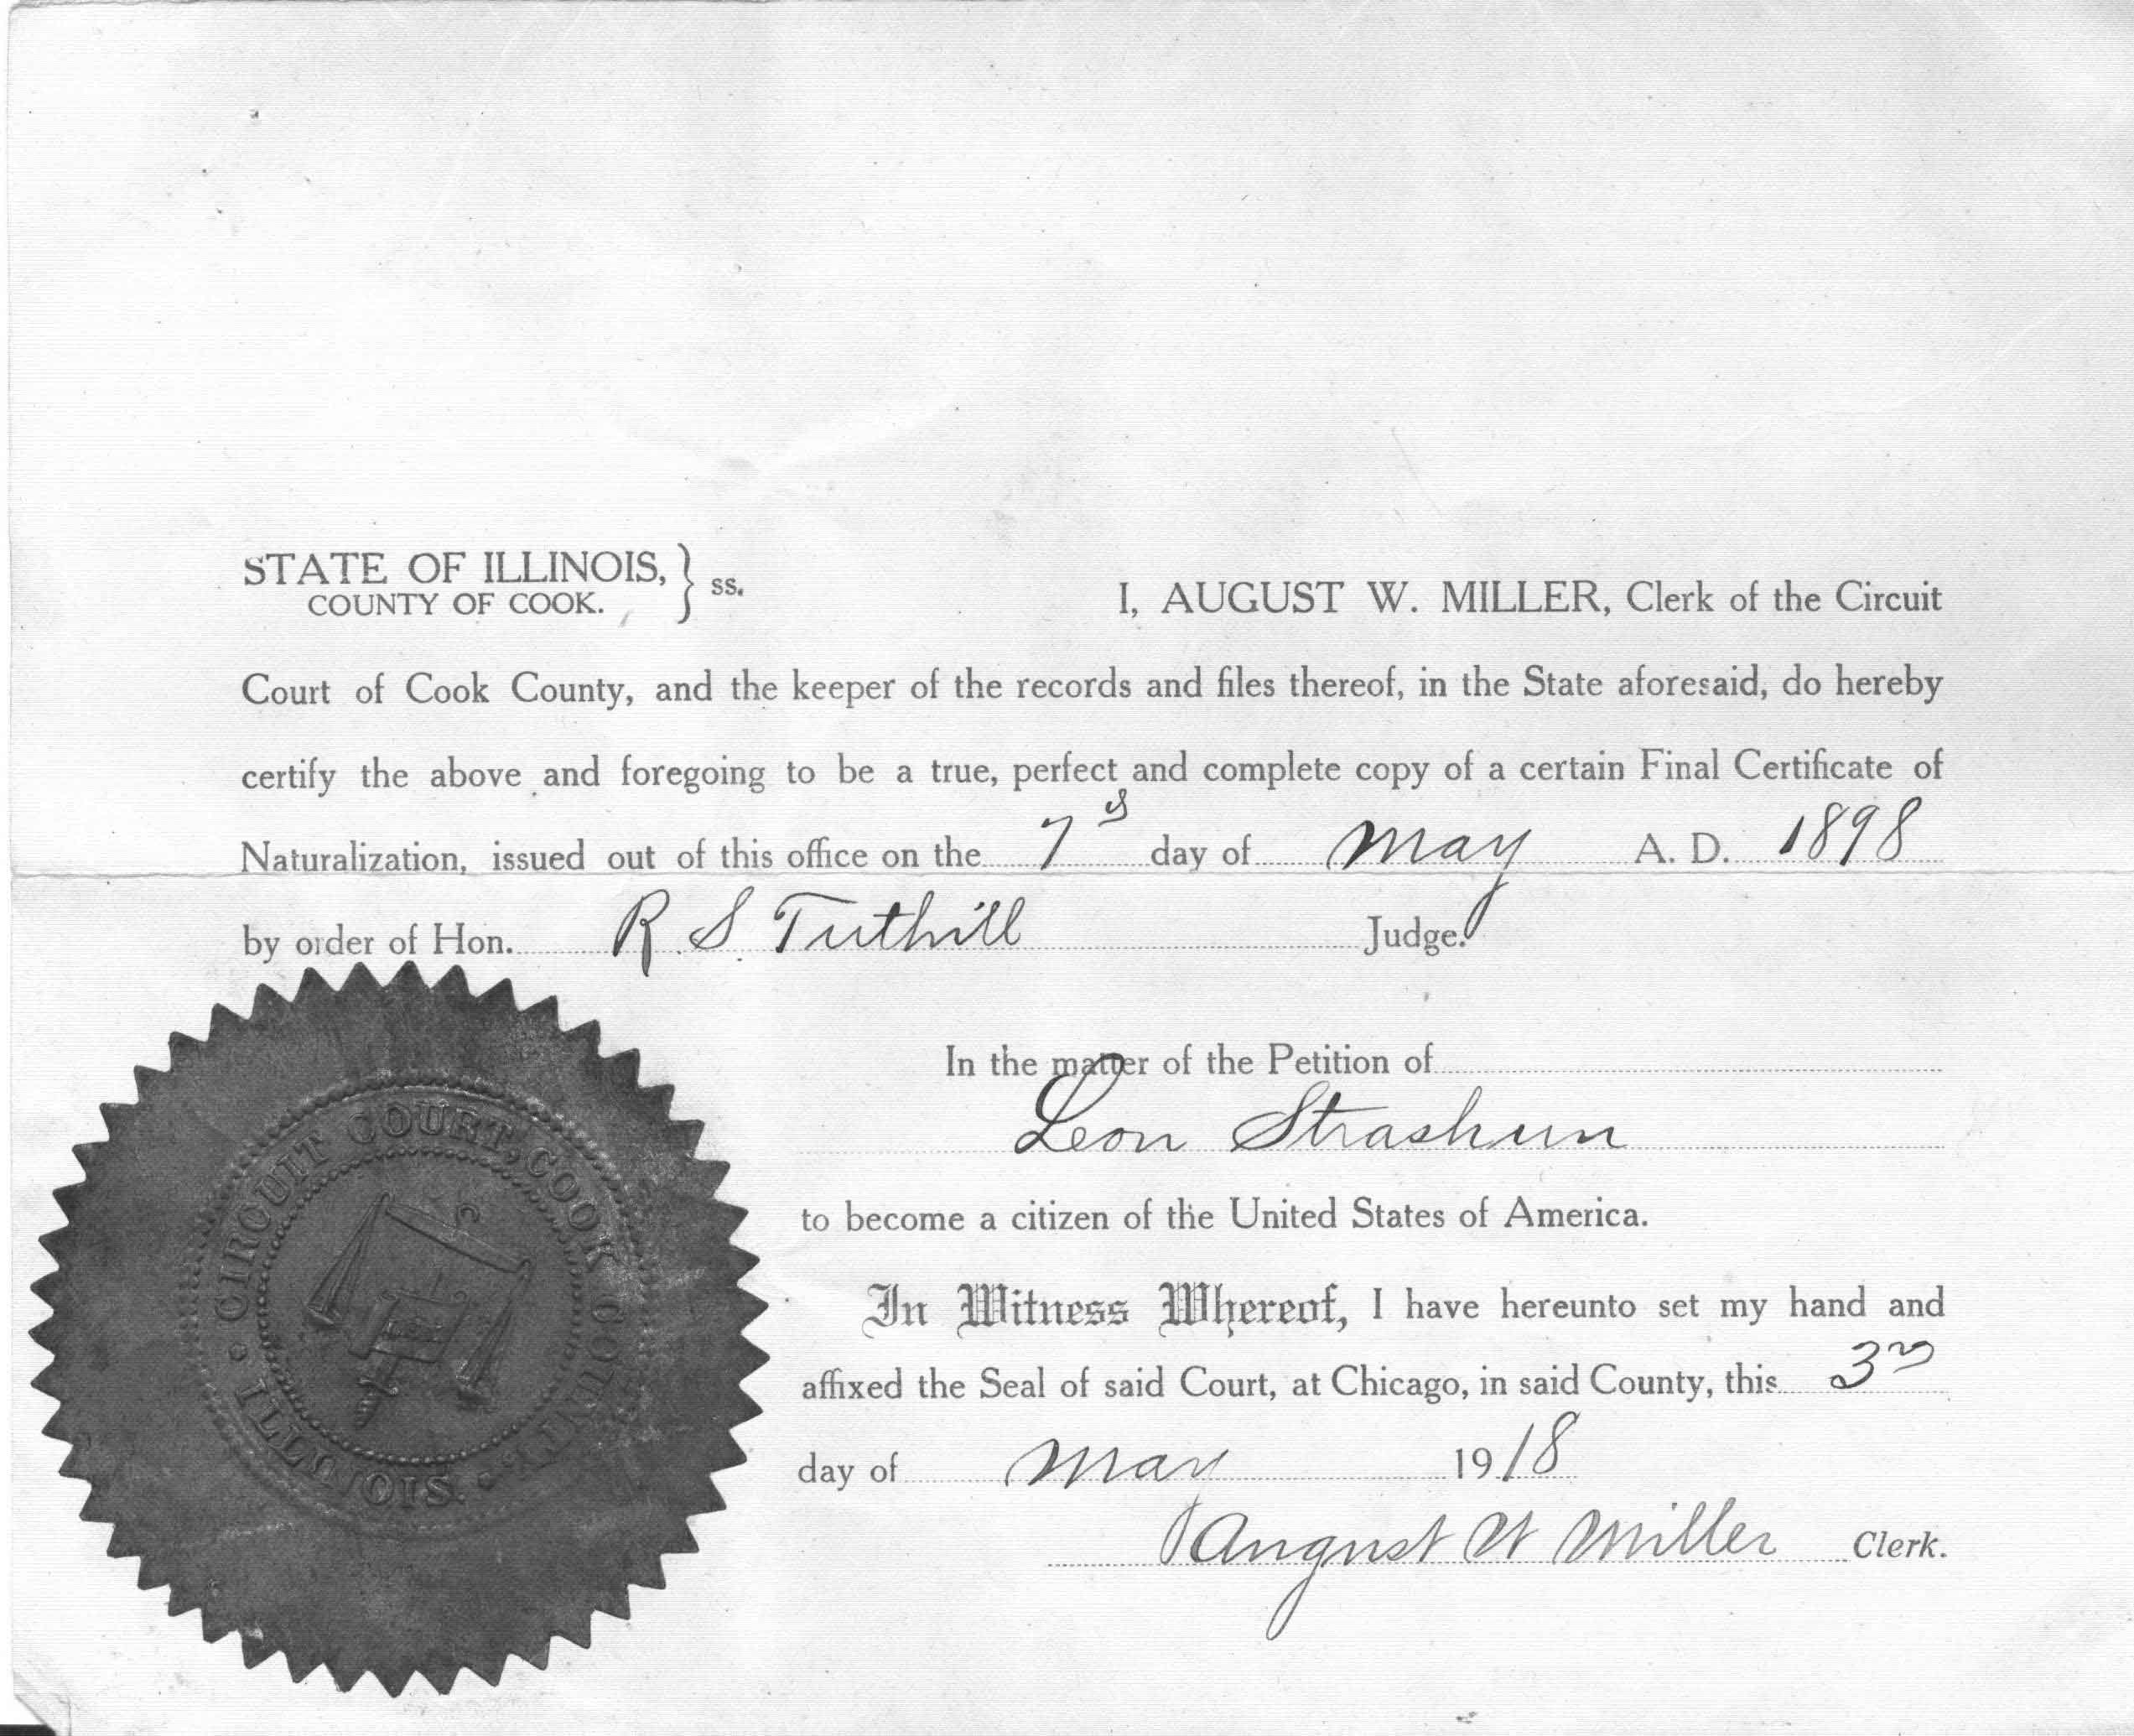 STATE OF ILLINOIS,
COUNTY OF COOK. } ss.
I, AUGUST W. MILLER, Clerk of the Circuit
Court of Cook County, and the keeper of the records and files thereof, in the State aforesaid, do hereby
certify the above and foregoing to be a true, perfect and complete copy of a certain Final Certificate of
Naturalization, issued out of this office on the 7 day of May A. D. 1898
by order of Hon. R. S. Tuthill Judge.
In the matter of the Petition of
Leon Strashun
to become a citizen of the United States of America.
In Witness Whereof, I have hereunto set my hand and
affixed the Seal of said Court, at Chicago, in said County, this 3rd
day of May 1918
August W Miller Clerk.
CIRCUIT COURT, COOK COUNTY, ILLINOIS.